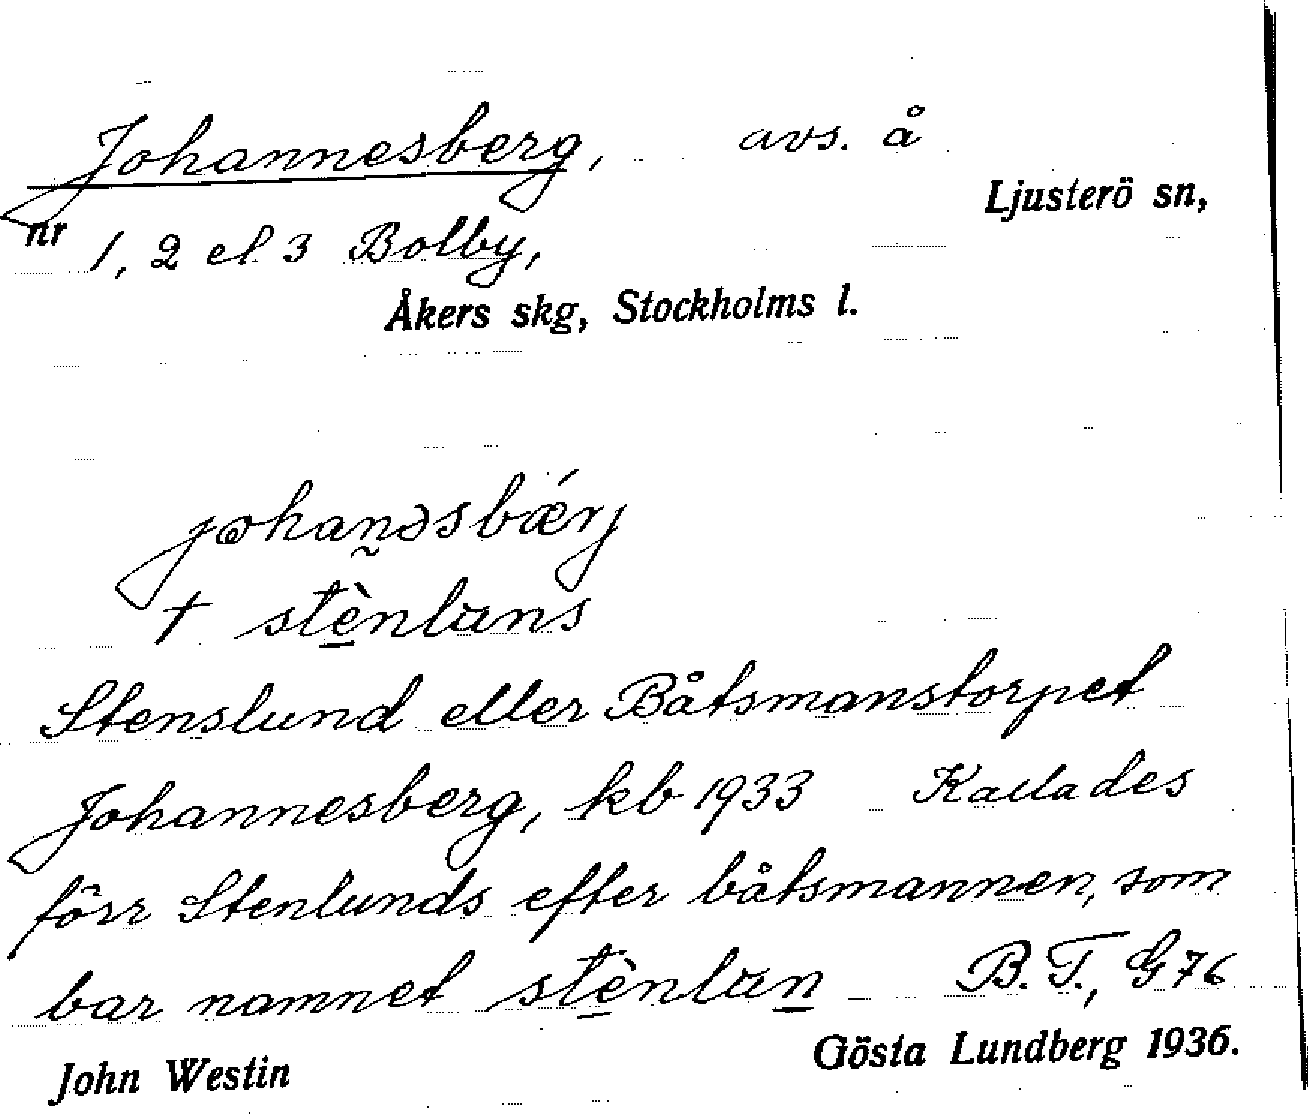 Johannesberg, avs. å
Ljusterö sn,
nr 1, 2 el 3 Bolby,
Åkers skg, Stockholms l.
johanəsbǽrj
† stènlans
Stenslund eller Båtsmanstorpet
Johannesberg, kb 1933 Kallades
förr Stenlunds efter båtsmannen, som
bar namnet stènlan B. T., G 76
John Westin Gösta Lundberg 1936.